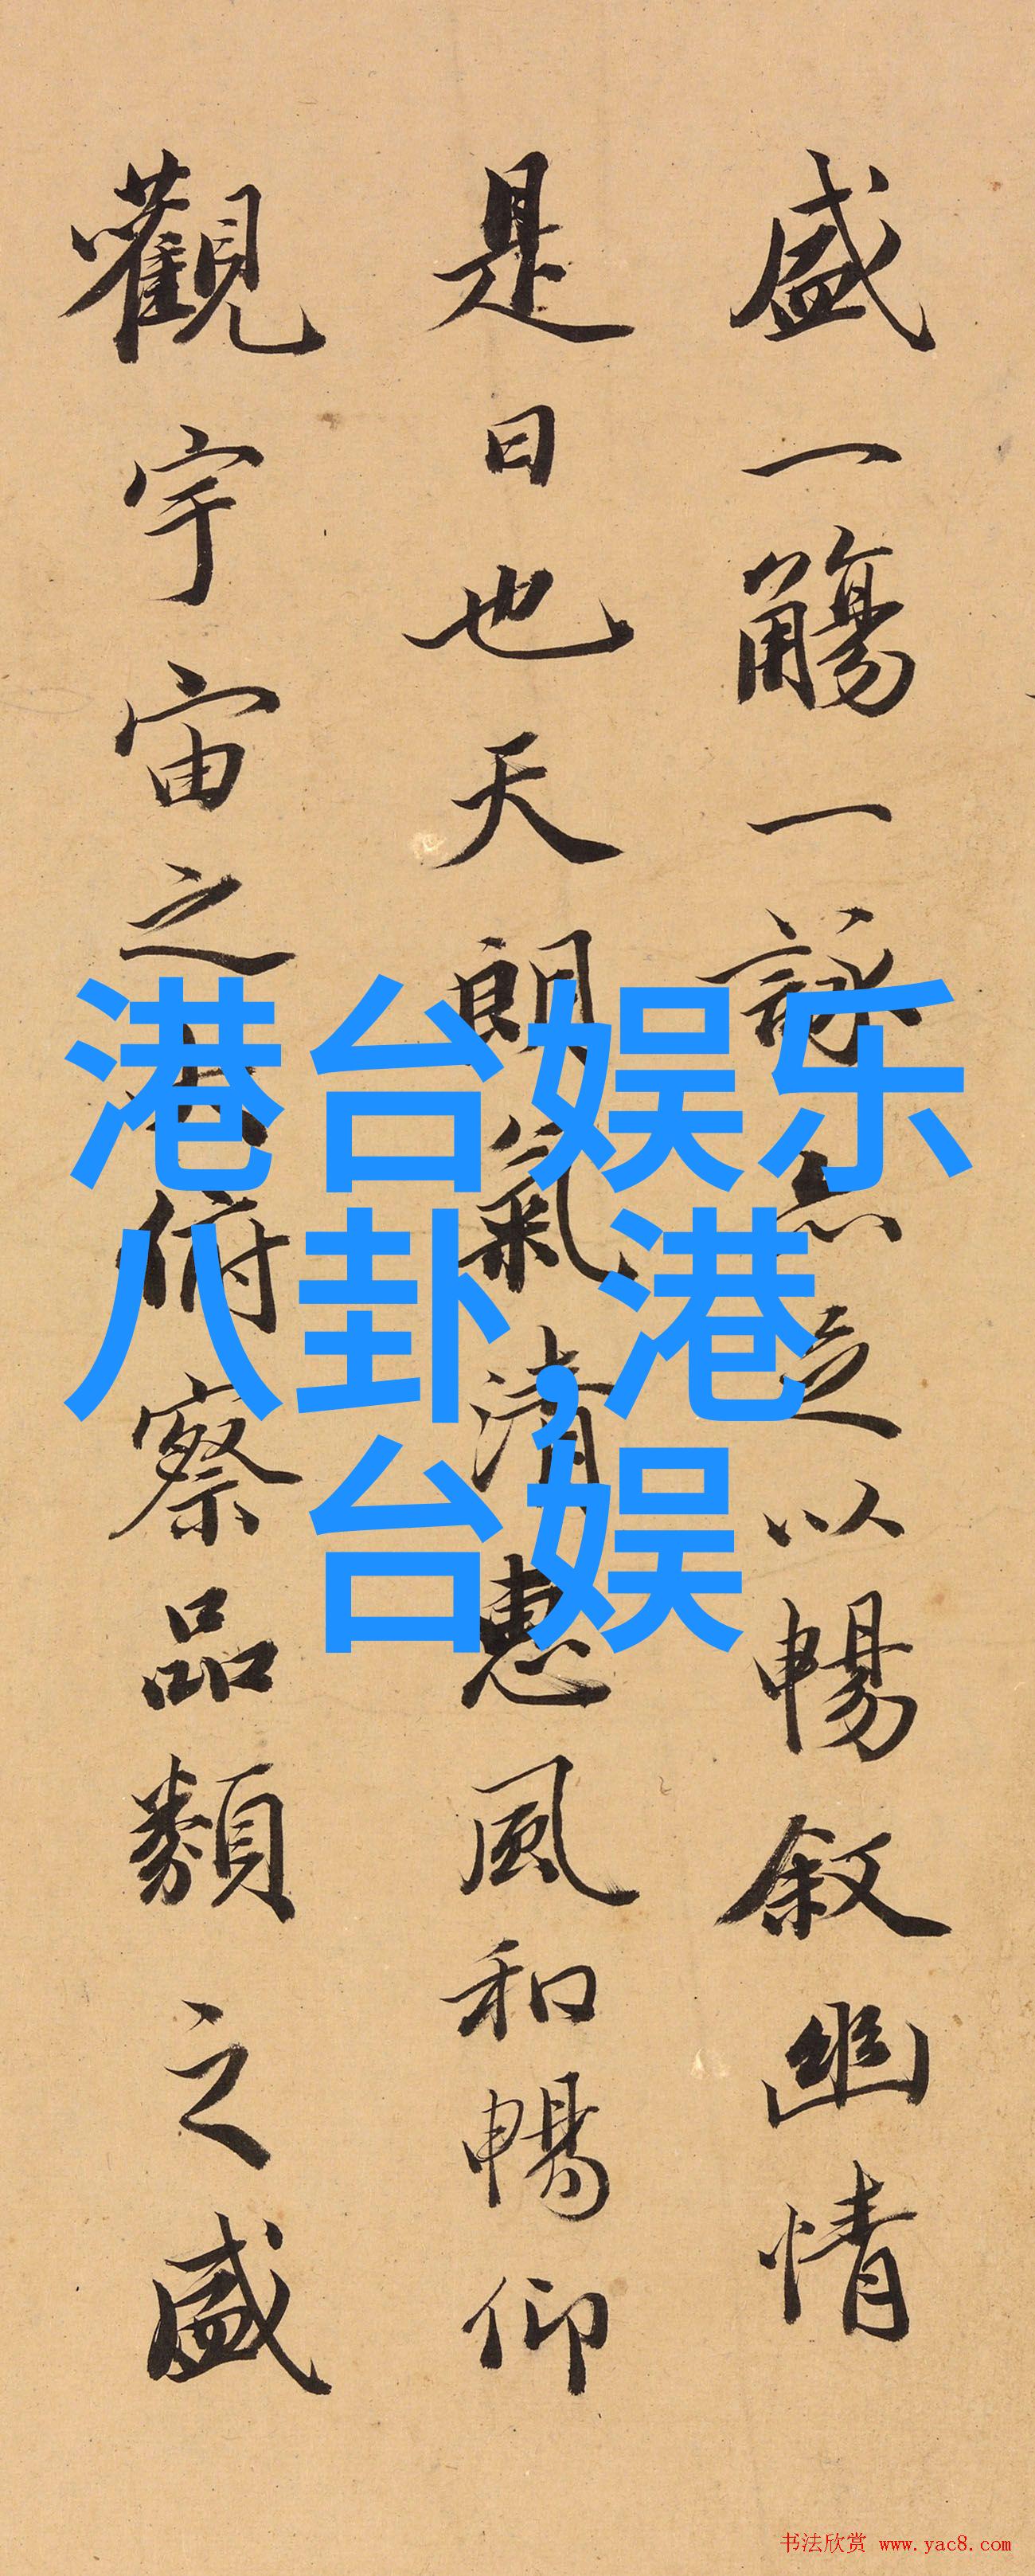 盛一觴一詠亦足以暢叙幽情
是日也天朗氣清惠風和暢仰
觀宇宙之大俯察品類之盛
港台娱乐
八卦,港
台娱
书法欣赏 www.yac8.com